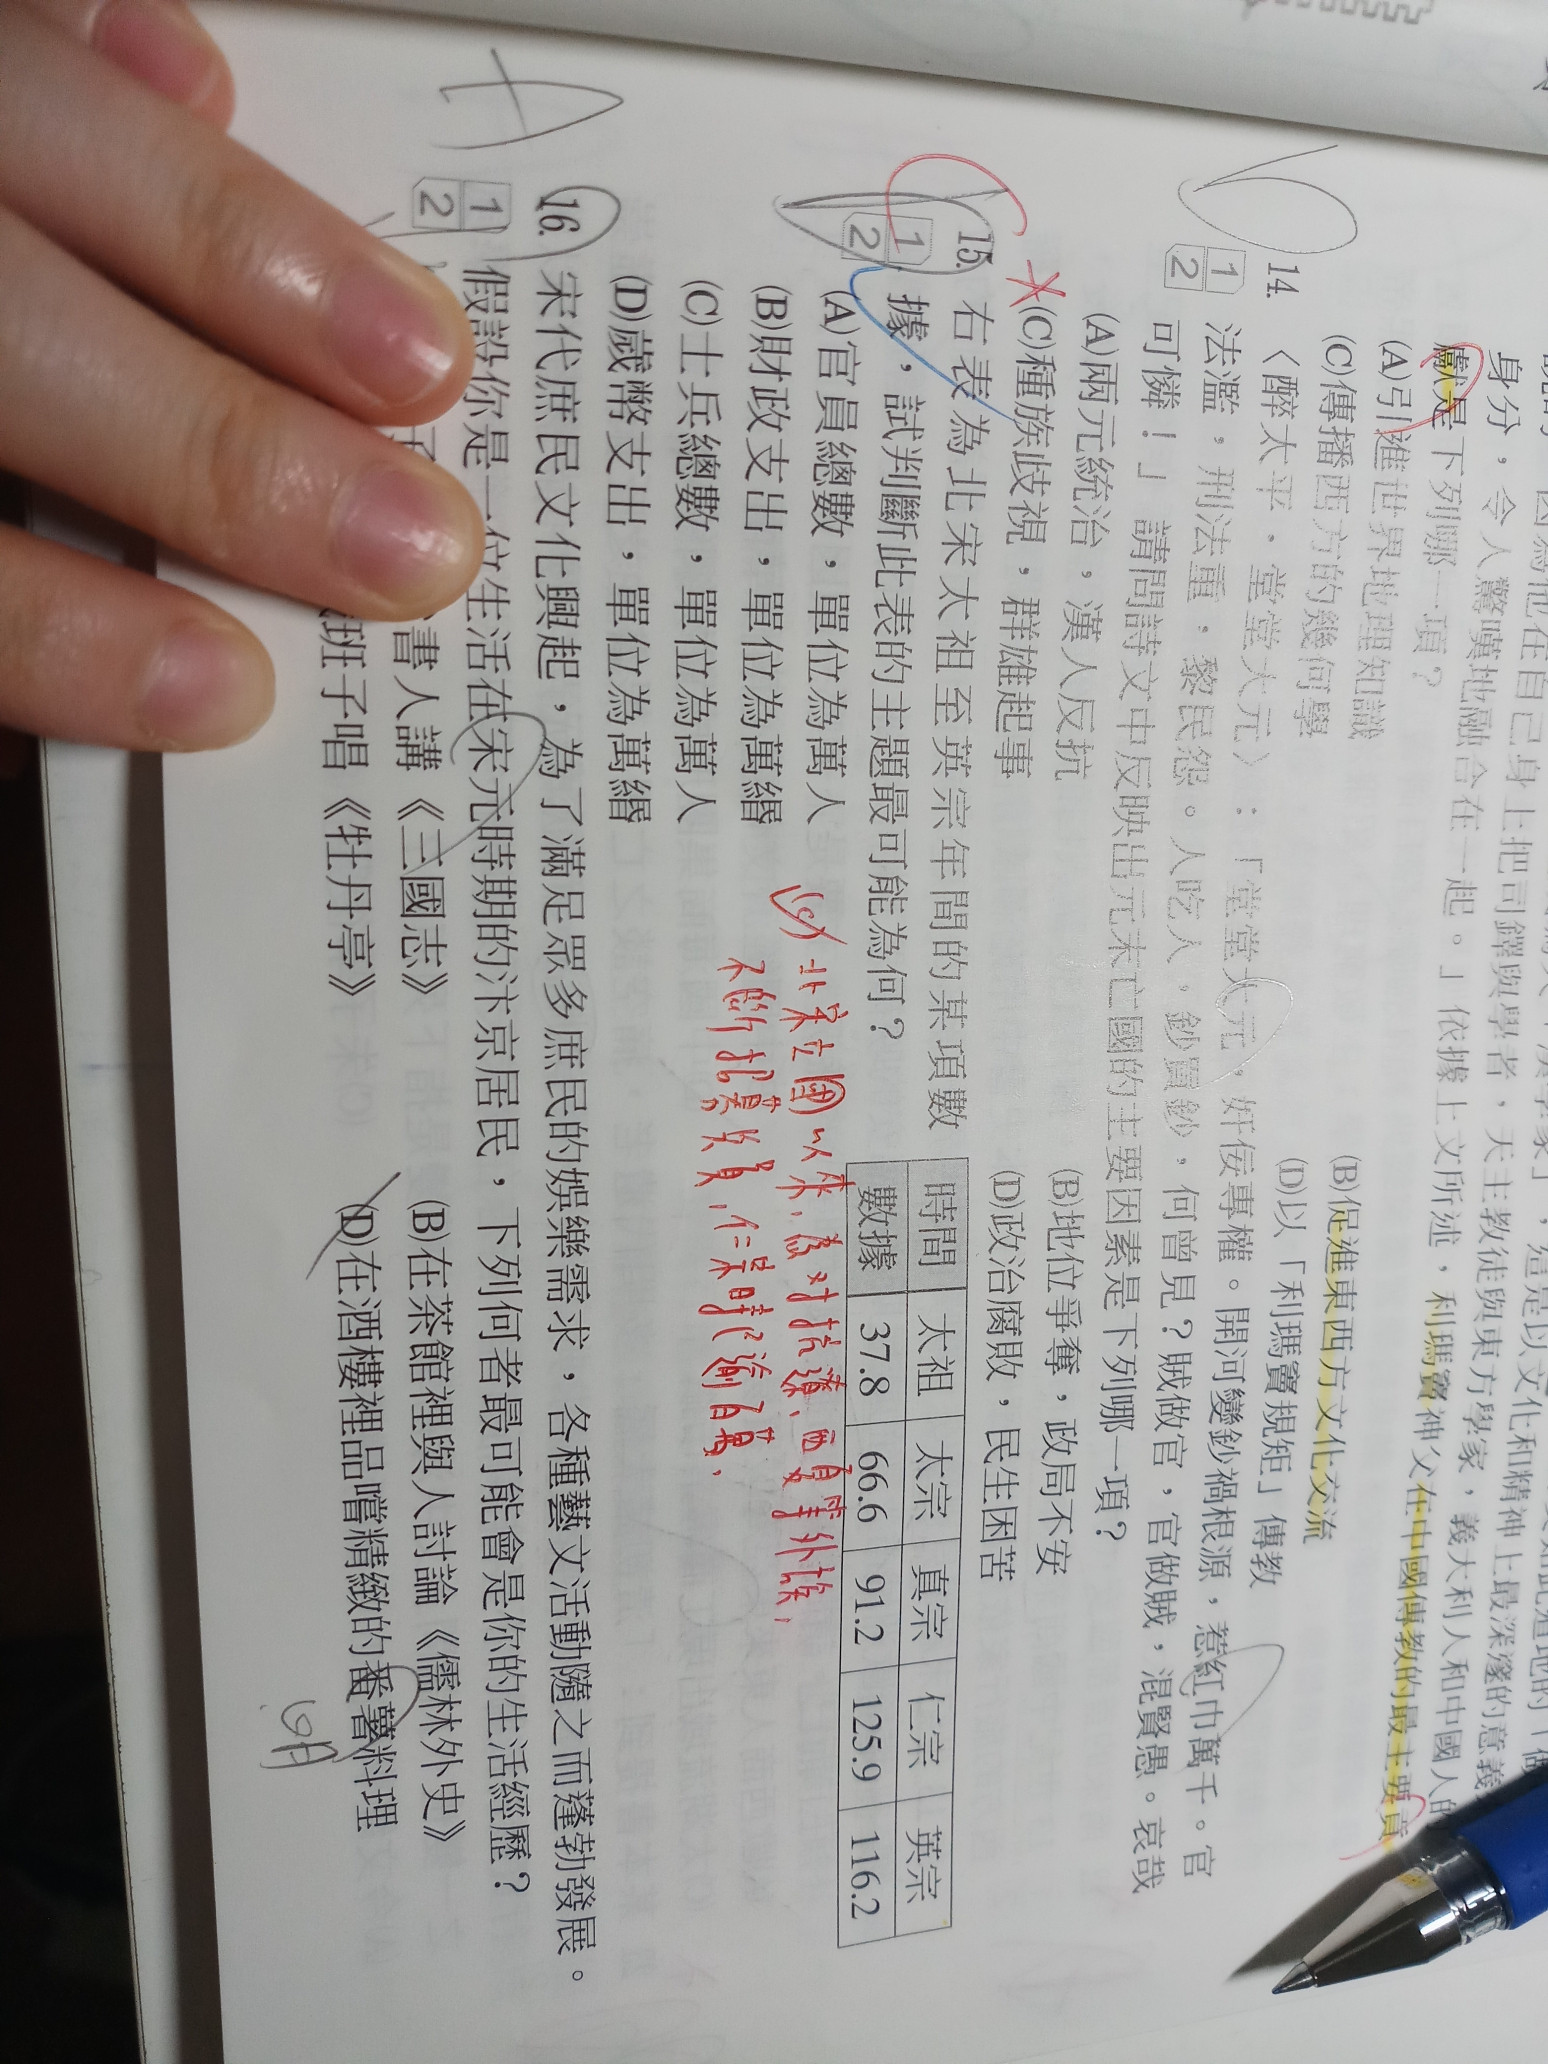 身分，令人驚嘆地融合在一起。」依據上文所述，利瑪竇神父在中國傳教的最主要貢
獻是下列哪一項？
(A)引進世界地理知識
(B)促進東西方文化交流
(C)傳播西方的幾何學
(D)以「利瑪竇規矩」傳教
14.
1
2
〈醉太平．堂堂大元〉：「堂堂大元，奸佞專權。開河變鈔禍根源，惹紅巾萬千。官
法濫，刑法重，黎民怨。人吃人，鈔買鈔，何曾見？賊做官，官做賊，混賢愚。哀哉
可憐！」請問詩文中反映出元末亡國的主要因素是下列哪一項？
(A)兩元統治，漢人反抗
(B)地位爭奪，政局不安
(C)種族歧視，群雄起事
(D)政治腐敗，民生困苦
15.
1
2
右表為北宋太祖至英宗年間的某項數
據，試判斷此表的主題最可能為何？
(A)官員總數，單位為萬人
(B)財政支出，單位為萬緡
(C)士兵總數，單位為萬人
(D)歲幣支出，單位為萬緡
時間 太祖 太宗 真宗 仁宗 英宗
數據 37.8 66.6 91.2 125.9 116.2
(C) 北宋立國以來，為对抗遼、西夏等外族，
不斷招募兵員，仁宗時已逾百萬，
16.
1
2
宋代庶民文化興起，為了滿足眾多庶民的娛樂需求，各種藝文活動隨之而蓬勃發展。
假設你是一位生活在宋元時期的汴京居民，下列何者最可能會是你的生活經歷？
書人講《三國志》
(B)在茶館裡與人討論《儒林外史》
班子唱《牡丹亭》
(D)在酒樓裡品嚐精緻的番薯料理
明